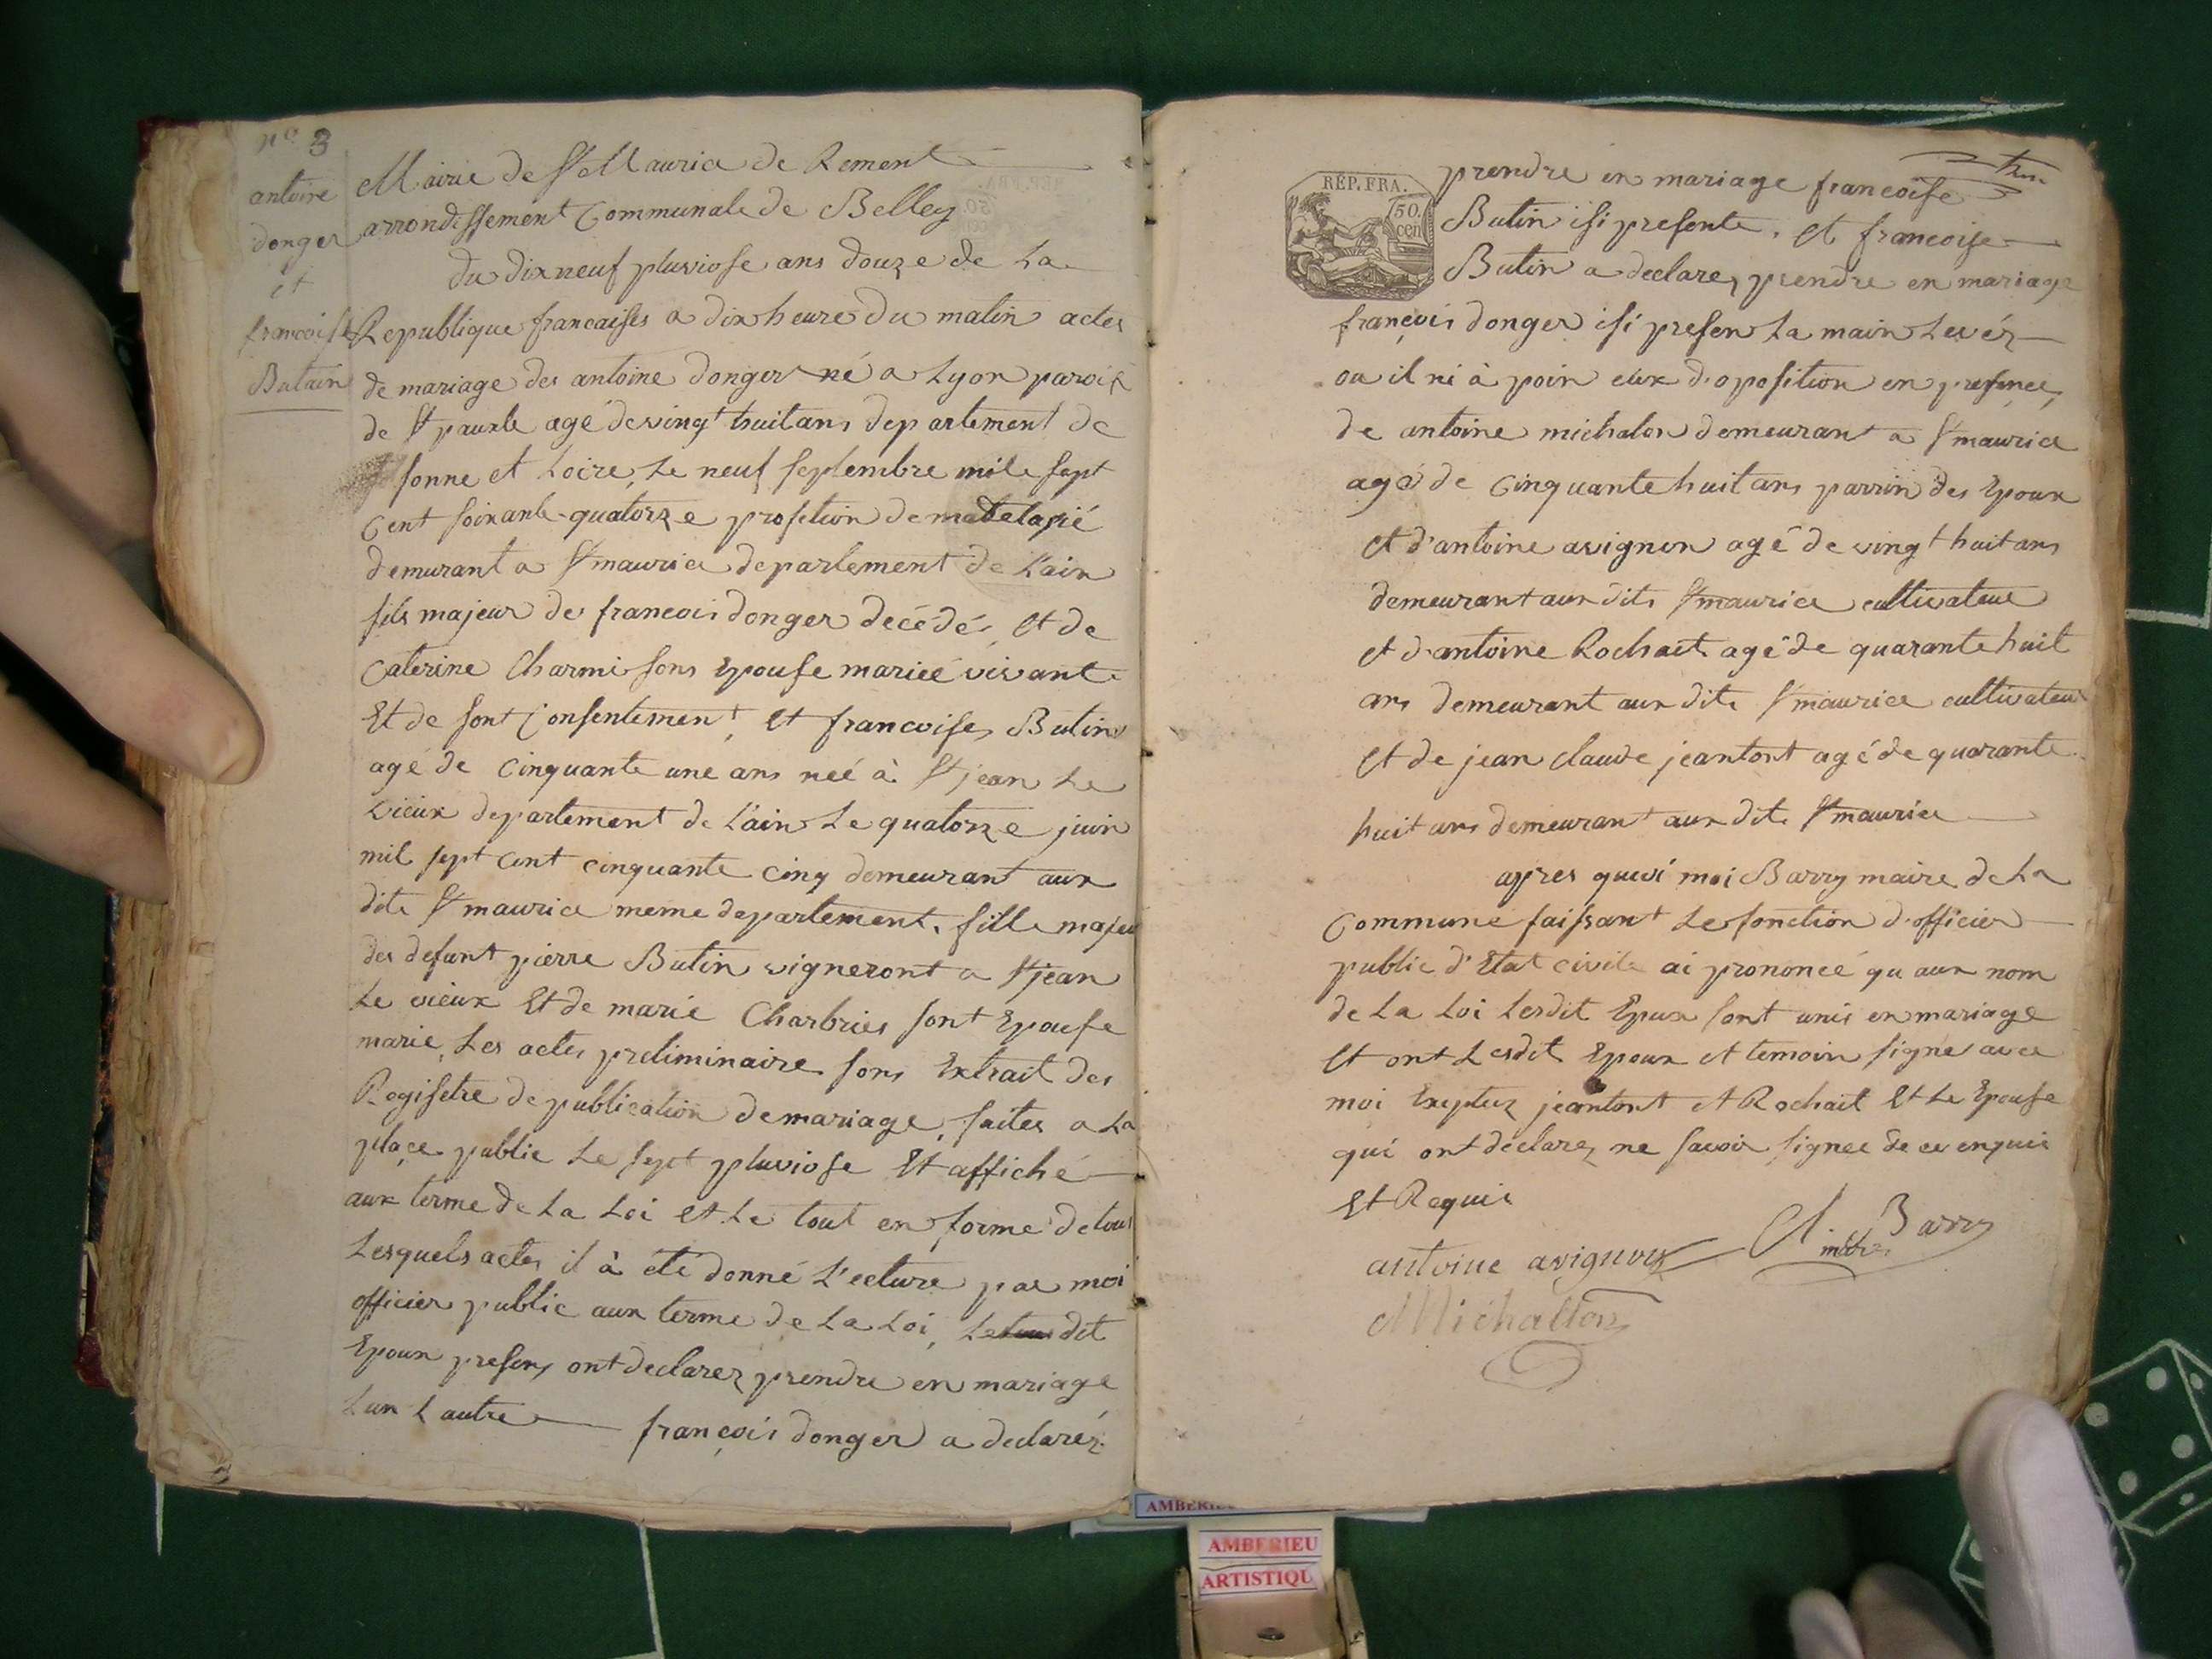 n.º 3
antoine
donger
et
francoise
Butain
Mairie de St Maurice de Rement
arrondissement Communale de Belley
du dix neuf pluviose ans douze de La
Republique francaises a dix heure du matin actes
de mariage des antoine donger né a Lyon paroix
de St pauxle agé de vingt huit ans departement de
sonne et Loire, Le neuf septembre mile sept
Cent soixante quatorze profession de matelasié
demurant a St maurice departement de L'ain
fils majeur de francois donger décédés et de
Caterine Charmi sons Epouse mariée vivante
Et de sont Consentement, et francoises Butin
agé de Cinquante une ans neé à St jean Le
vieux departement de L'ain Le quatorze juin
mil sept cent cinquante cinq demeurant aux
dite St maurice meme departement. fille majeu
des defunt pierre Butin vigneront a St jean
Le vieux Et de marie Charbries sont Epouse
marie, Les actes preliminaire sons Extrait des
Registre de publication de mariage, faites a La
plaçe public Le sept pluviose Et affiché
aux terme de La Loi et Le tout en forme de tout
Lesquels actes il à été donné L'ecture par moi
officier public aux terme de La Loi, Le dit
Epoux presens ont declarez prendre en mariage
Lun L autre françois donger a declaréz
RÉP. FRA.
50.
cen
prendre en mariage francoise
Butin isi presente, et francoise
Butin a declarez prendre en mariage
françois donger isi presen La main Levéz
ou il ni à poin eux d'oposition en presence
de antoine michalon demeurant a St maurice
agé de cinquante huit ans parrin des Epoux
et d'antoine avignon agé de vingt huit ans
demeurant aux dite St maurice cultivateur
et d'antoine Rochait agé de quarante huit
ans demeurant aux dite St maurice cultivateur
et de jean claude jeantont agé de quarante
huit ans demeurant aux dite St maurice
apres quoi moi Barry maire de La
Commune faissant Le fonction d'officier
public d'Etat civile ai prononcé qu aux nom
de La Loi Lesdit Epoux sont unis en mariage
et ont Lesdit Epoux et temoin signé avec
moi Exeptez jeantont et Rochait Et Le Epouse
qui ont déclarez ne savoir signee de ce enquis
Et Requis
antoine avignon
Barry
maire
Michallon
AMBERIEU
AMBERIEU
ARTISTIQU